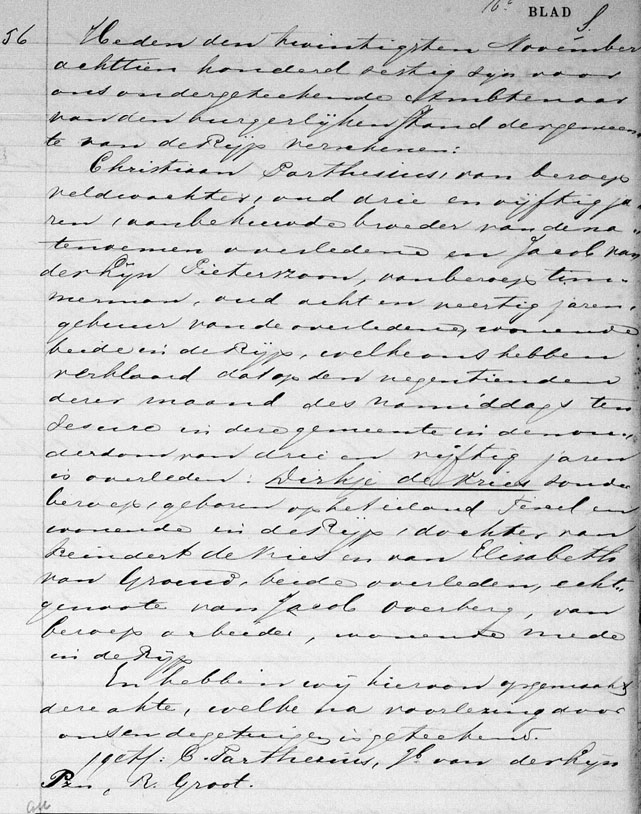 16e BLAD S.
56 Heden den twintigsten November
achttien honderd sestig zijn voor
ons ondergeteekende Ambtenaar
van den burgerlijken stand der gemeen
te van de Rijp verschenen:
Christiaan Parthesius, van beroep
veldwachter, oud drie en vijftig ja
ren, aanbehuwde broeder van de na
tenoemen overledene en Jacob van
der Rijn Pieterszoon, van beroep tim-
merman, oud acht en veertig jaren,
gebuur van de overledene, wonende
beide in de Rijp, welke ons hebben
verklaard dat op den negentienden
dezer maand des namiddags ten
ure in deze gemeente in den ou-
derdom van drie en vijftig jaren
is overleden: Dirkje de Vries zonder
beroep, geboren op het eiland Texel en
wonende in de Rijp, dochter van
Reindert de Vries en van Elisabeth
van Groend, beide overleden, echt-
genoote van Jacob Overberg, van
beroep arbeider, wonende mede
in de Rijp
En hebben wij hiervan opgemaakt
deze akte, welke na voorlezing door
ons en de getuigen is geteekend.
/get/: C. Parthesius, Jb. van der Rijn
Pzn, R. Groot.